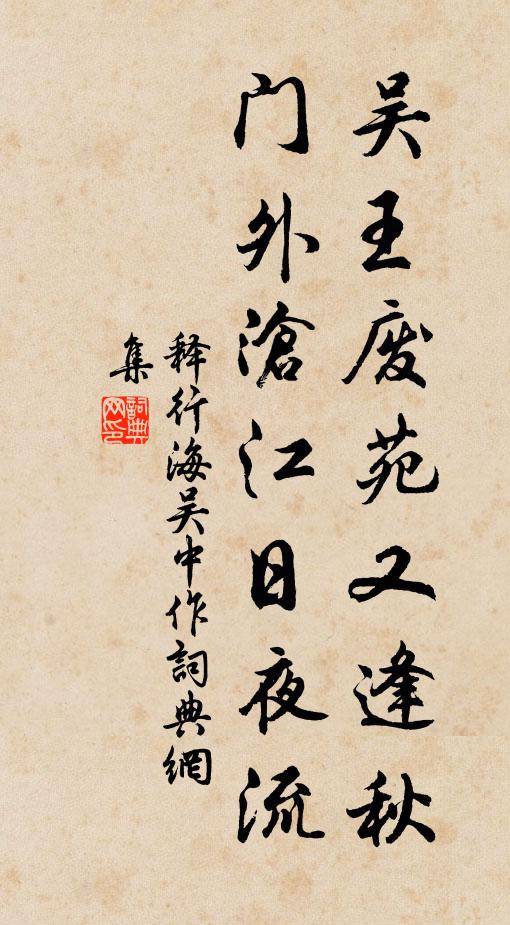 吴王废苑又逢秋
门外滄江日夜流
释行海吴中作詞典網
集
詞典网印